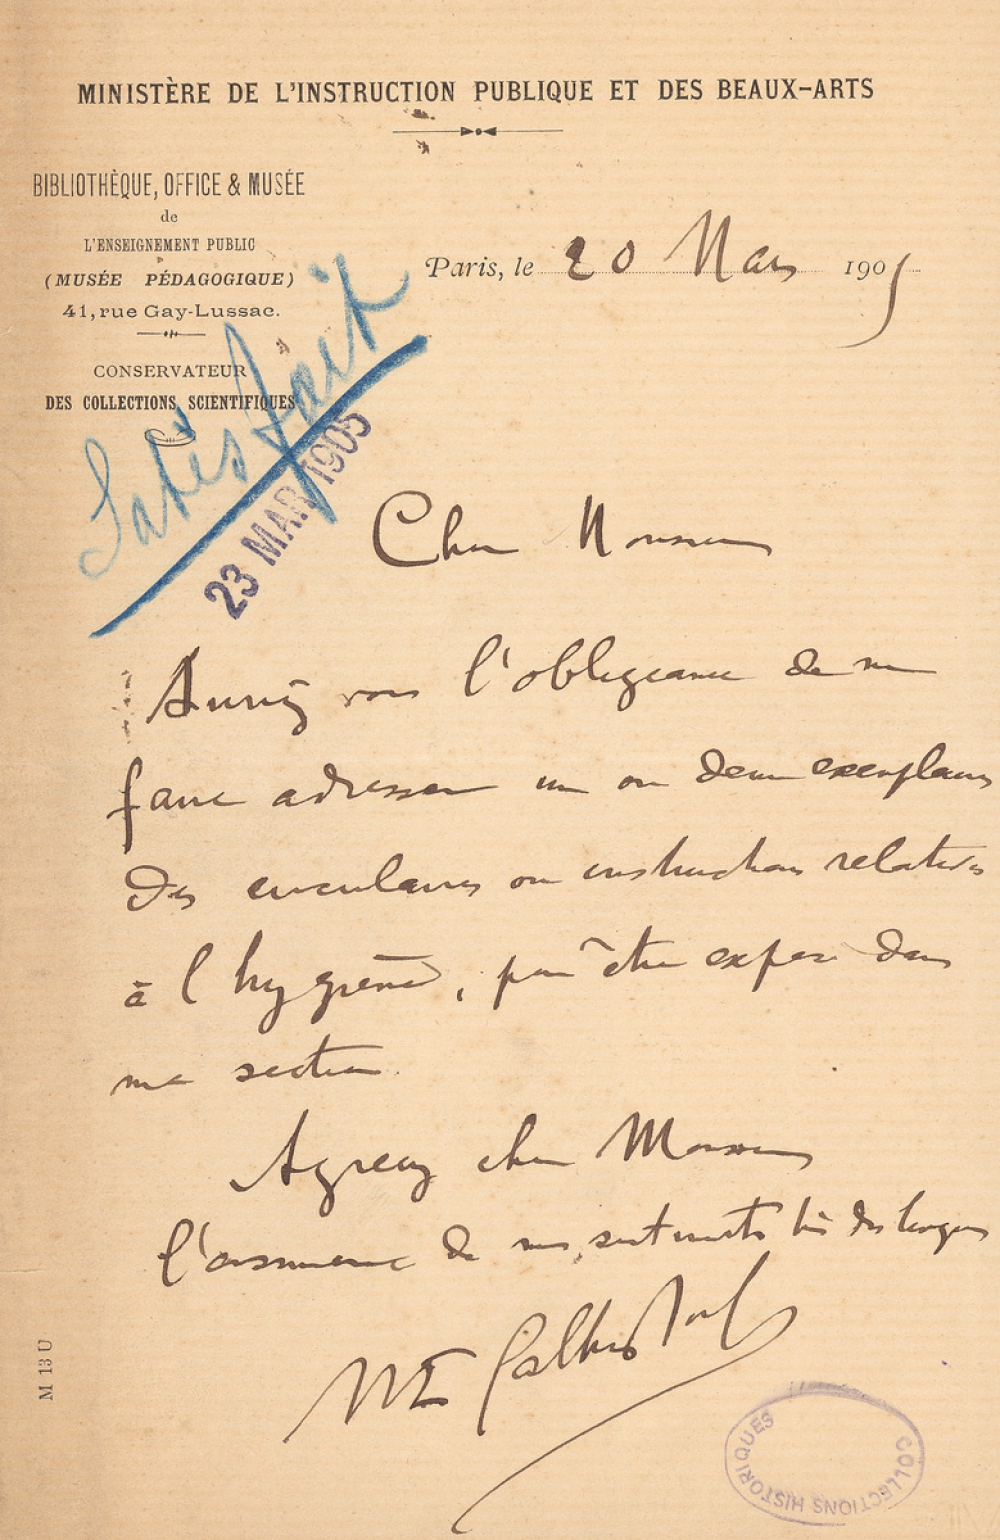 MINISTÈRE DE L'INSTRUCTION PUBLIQUE ET DES BEAUX-ARTS
BIBLIOTHÈQUE, OFFICE & MUSÉE
de
L'ENSEIGNEMENT PUBLIC
(MUSÉE PÉDAGOGIQUE)
41, rue Gay-Lussac.
CONSERVATEUR
DES COLLECTIONS SCIENTIFIQUES
Paris, le 20 Mars 1905
Satisfait
23 MAR 1905
Cher Monsieur
Auriez vous l'obligeance de me
faire adresser un ou deux exemplaires
des circulaires ou instructions relatives
à l'hygiène, pour être exposé dans
ma section.
Agréez cher Monsieur
l'assurance de mes sentiments très distingués
M 13 U
COLLECTIONS HISTORIQUES